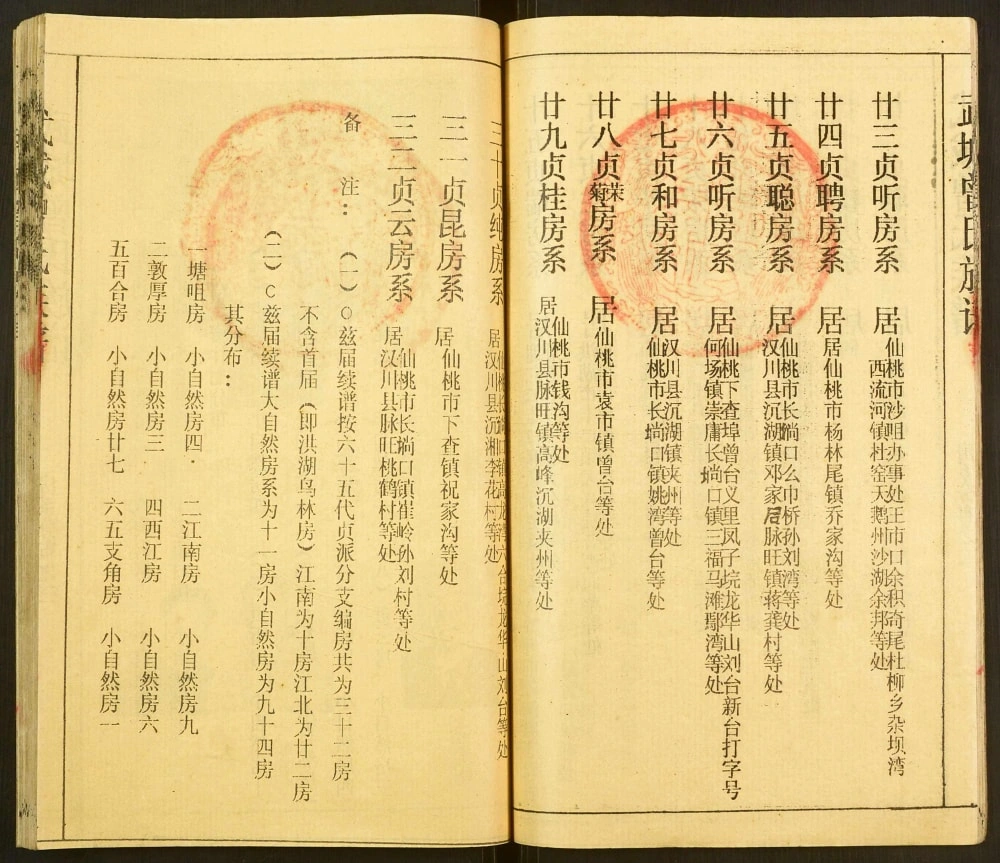 武城曾氏族谱
廿三贞听房系 居仙桃市沙咀办事处王市口余积奇尾杜柳乡杂坝湾
西流河镇杜窑天鹅州沙湖余邦等处
廿四贞聘房系 居居仙桃市杨林尾镇乔家沟等处
廿五贞聪房系 居仙桃市长埫口么巾桥孙刘湾等处
汉川县沉湖镇邓家居脉旺镇蒋龚村等处
廿六贞听房系 居仙桃下查埠曾台义里凤子垸龙华山刘台新台打字号
何场镇崇庸长埫口镇三福马滩鄢湾等处
廿七贞和房系 居汉川县沉湖镇夹州等处
仙桃市长埫口镇姚湾曾台等处
廿八贞荣菊房系 居仙桃市袁市镇曾台等处
廿九贞桂房系 居仙桃市钱沟等处
汉川县脉旺镇高峰沉湖夹州等处
三十贞纯房系 居
汉川县沉湘李花村等处
三一贞昆房系 居仙桃市下查镇祝家沟等处
三二贞云房系 居仙桃市长埫口镇崔岭孙刘村等处
汉川县脉旺桃鹤村等处
备 注：（一）○兹届续谱按六十五代贞派分支编房共为三十二房
不含首届（即洪湖乌林房）江南为十房江北为廿二房
（二）○兹届续谱大自然房系为十一房小自然房为九十四房
其分布：
一塘咀房 小自然房四· 二江南房 小自然房九
二敦厚房 小自然房三 四西江房 小自然房六
五百合房 小自然房廿七 六五支角房 小自然房一